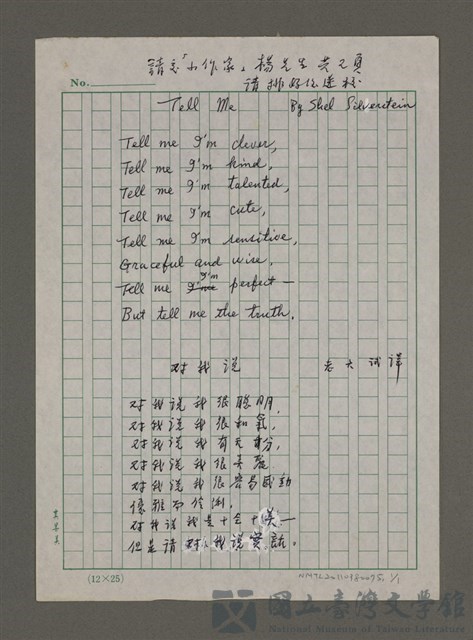 請志「小作家」楊先生費之頁
No.
请排好后送校
Tell Me By Shel Silverstein
Tell me I'm clever,
Tell me I'm kind,
Tell me I'm talented,
Tell me I'm cute,
Tell me I'm sensitive,
Graceful and wise.
Tell me I'm perfect—
But tell me the truth.
对我说 老大试譯
对我说我很聪明,
对我说我很和氣,
对我说我有天分,
对我说我很美麗
对我说我很容易感動
優雅而伶俐.
对我说我是十全十美—
但是请对我说實話。
(12×25)
國立臺灣文學館
National Museum of Taiwan Literature